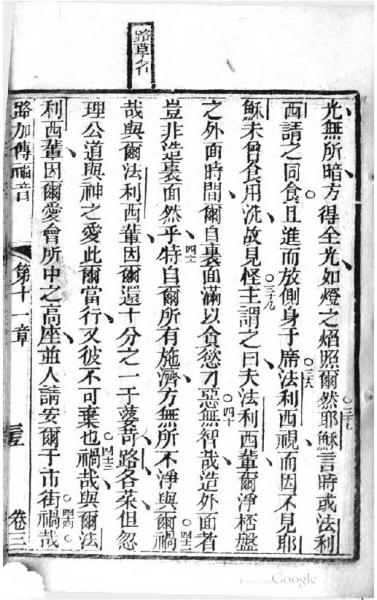 路草名
光無所暗方得全光如燈之焰照爾然耶穌言時或法利
三七
西請之同食且進而放側身于席法利西視而因不見耶
三八
穌未曾食用洗故見怪主謂之曰夫法利西輩爾淨杯盤
三十九
之外面時間爾自裏面滿以貪慾刁惡無智哉造外面者
四十
豈非造裏面然乎特自爾所有施濟方無所不淨與爾禍
四一
四二
哉與爾法利西輩因爾還十分之一于薄荷路各菜但忽
理公道與神之愛此爾當行又彼不可棄也禍哉與爾法
四三
利西輩因爾愛會所中之高座並人請安爾于市街禍哉
四四
路加傳福音
第十一章
卷三
Google